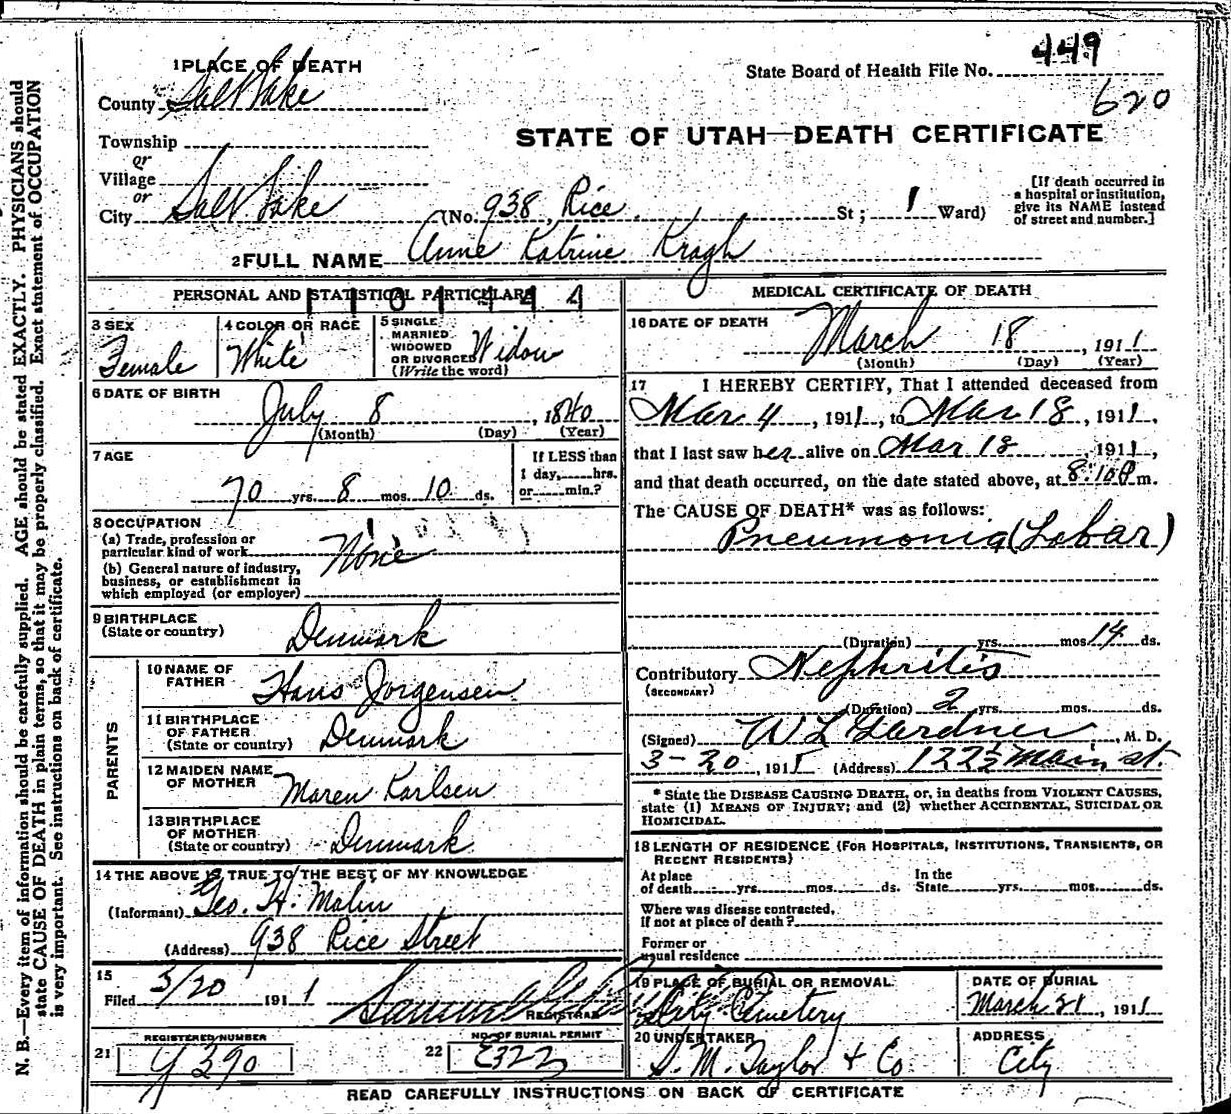 N. B.—Every item of information should be carefully supplied. AGE should be stated EXACTLY. PHYSICIANS should
state CAUSE OF DEATH in plain terms, so that it may be properly classified. Exact statement of OCCUPATION
is very important. See instructions on back of certificate.
449
State Board of Health File No.
620
1 PLACE OF DEATH
County Salt Lake
STATE OF UTAH—DEATH CERTIFICATE
Township
or
Village
or
City Salt Lake (No. 938, Rice St; 1 Ward)
[If death occurred in
a hospital or institution,
give its NAME instead
of street and number.]
2 FULL NAME Anne Katrine Kragh
PERSONAL AND STATISTICAL PARTICULARS
3 SEX
Female
4 COLOR OR RACE
White
5 SINGLE
MARRIED
WIDOWED
OR DIVORCED Widow
(Write the word)
6 DATE OF BIRTH
July 8, 1840
(Month) (Day) (Year)
7 AGE
70 yrs. 8 mos. 10 ds.
If LESS than
1 day, hrs.
or min.?
8 OCCUPATION
(a) Trade, profession or
particular kind of work None
(b) General nature of industry,
business, or establishment in
which employed (or employer)
9 BIRTHPLACE
(State or country) Denmark
PARENTS
10 NAME OF
FATHER Hans Jorgensen
11 BIRTHPLACE
OF FATHER
(State or country) Denmark
12 MAIDEN NAME
OF MOTHER Maren Karlsen
13 BIRTHPLACE
OF MOTHER
(State or country) Denmark
14 THE ABOVE IS TRUE TO THE BEST OF MY KNOWLEDGE
(Informant) Geo. H. Malin
(Address) 938 Rice Street
15
Filed 3/20 1911
REGISTRAR
REGISTERED NUMBER
21 Y390
NO. OF BURIAL PERMIT
22 E322
MEDICAL CERTIFICATE OF DEATH
16 DATE OF DEATH
March 18, 1911
(Month) (Day) (Year)
17 I HEREBY CERTIFY, That I attended deceased from
Mar 4, 1911, to Mar 18, 1911,
that I last saw her alive on Mar 18 1911,
and that death occurred, on the date stated above, at 8:10 P m.
The CAUSE OF DEATH* was as follows:
Pneumonia (Lobar)
(Duration) yrs. mos. 14 ds.
Contributory Nephritis
(SECONDARY)
(Duration) 2 yrs. mos. ds.
(Signed) W L Gardner, M. D.
3-20, 1911 (Address) 122½ Main st.
* State the DISEASE CAUSING DEATH, or, in deaths from VIOLENT CAUSES,
state (1) MEANS OF INJURY; and (2) whether ACCIDENTAL, SUICIDAL OR
HOMICIDAL.
18 LENGTH OF RESIDENCE (FOR HOSPITALS, INSTITUTIONS, TRANSIENTS, OR
RECENT RESIDENTS)
At place
of death yrs. mos. ds.
In the
State yrs. mos. ds.
Where was disease contracted,
If not at place of death?
Former or
usual residence
19 PLACE OF BURIAL OR REMOVAL
City Cemetery
DATE OF BURIAL
March 21, 1911
20 UNDERTAKER
S. M. Taylor & Co
ADDRESS
City
READ CAREFULLY INSTRUCTIONS ON BACK OF CERTIFICATE